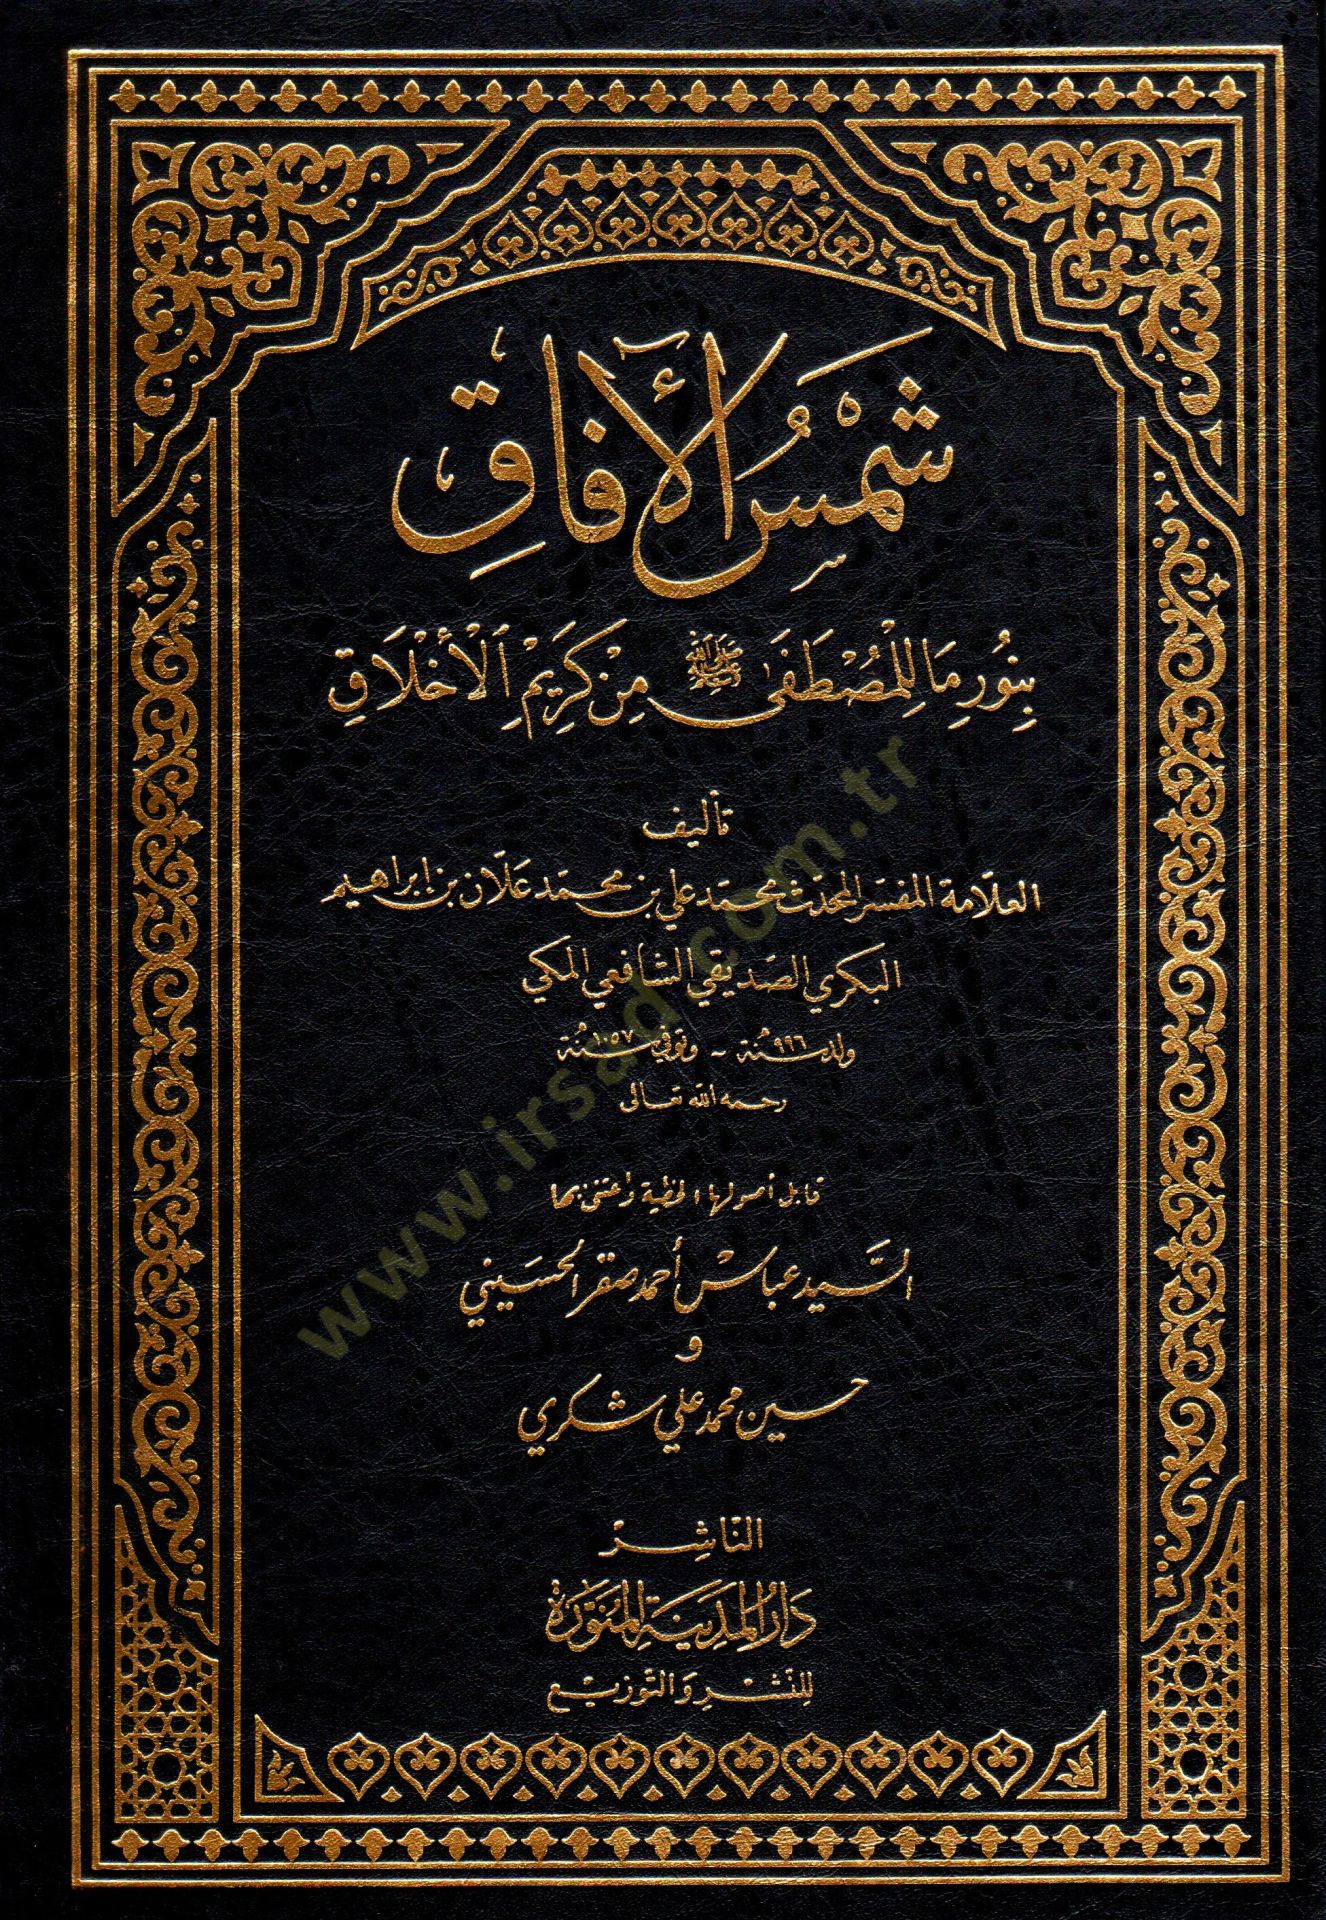 شَمْسُ الْآفَاقِ
بِنُورِ مَا لِلْمُصْطَفَى ﷺ مِنْ كَرِيْمِ الْأَخْلَاقِ
تأليف
العلامة المفسر المحدث محمد علي بن محمد علان بن إبراهيم
البكري الصديقي الشافعي المكي
ولد سنة ٩٩٦ - وتوفي سنة ١٠٥٧
رحمه الله تعالى
قابل أصولها الخطية واعتنى بها
السيد عباس أحمد صقر الحسيني
و
حسين محمد علي شكري
الناشر
دار المدينة المنورة
للنشر والتوزيع
www.irsad.com.tr